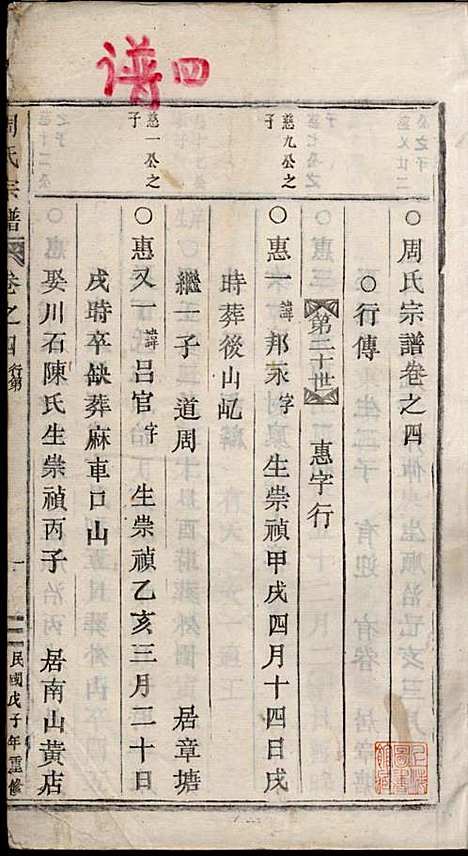 四譜
○周氏宗譜卷之四
○行傳
第二十世 惠字行
慈九公之子
○惠一 諱邦永字 生崇禎甲戌四月十四日戌
時葬後山屼
繼一子 道周 居章塘
慈一公之子
○惠又一 諱呂官字 生崇禎乙亥三月二十日
戌時卒缺葬麻車口山
娶川石陳氏生崇禎丙子 居南山黃店
周氏宗譜 卷之四 行第 一 民國戊子年重修